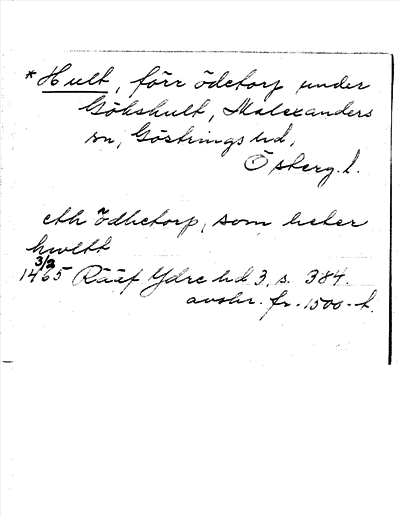 * Hult, förr ödetorp under
Gökshult, Malexanders
sn, Göstrings hd,
Österg. l.
eth ödhetorp, som heter
hwltt
3/2
1465 Rääf Ydre hd 3, s. 384.
avskr. fr. 1500-t.